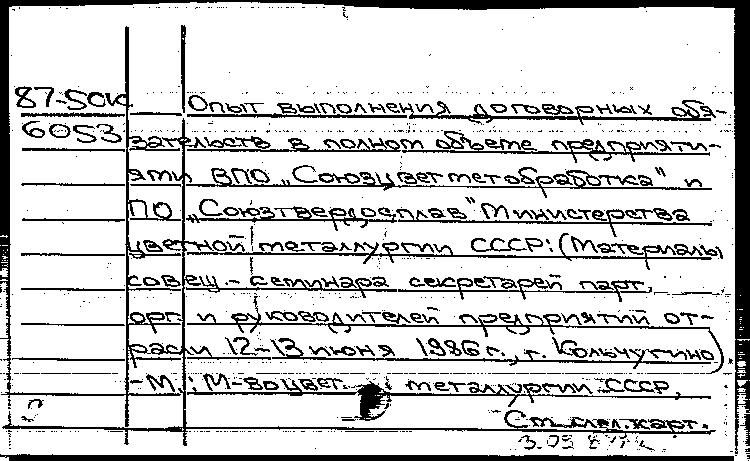 87-50к Опыт выполнения договорных обя-
6053 зательств в полном объеме предприяти-
ями ВПО „Союзцветметобработка" и
ПО „Союзтвердосплав" Министерства
цветной металлургии СССР: (Материалы
совещ.-семинара секретарей парт.
орг. и руководителей предприятий от-
расли 12-13 июня 1986 г., г. Кольчугино)
-М.: М-во цвет. металлургии СССР,
См. гл. карт.